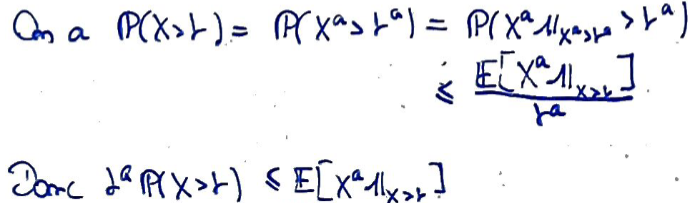 On a P(X>t) = P(X^a>t^a) = P(X^a 1l_{X^a>t^a} > t^a)
≤ E[X^a 1l_{X>t}] / t^a
Donc t^a P(X>t) ≤ E[X^a 1l_{X>t}]